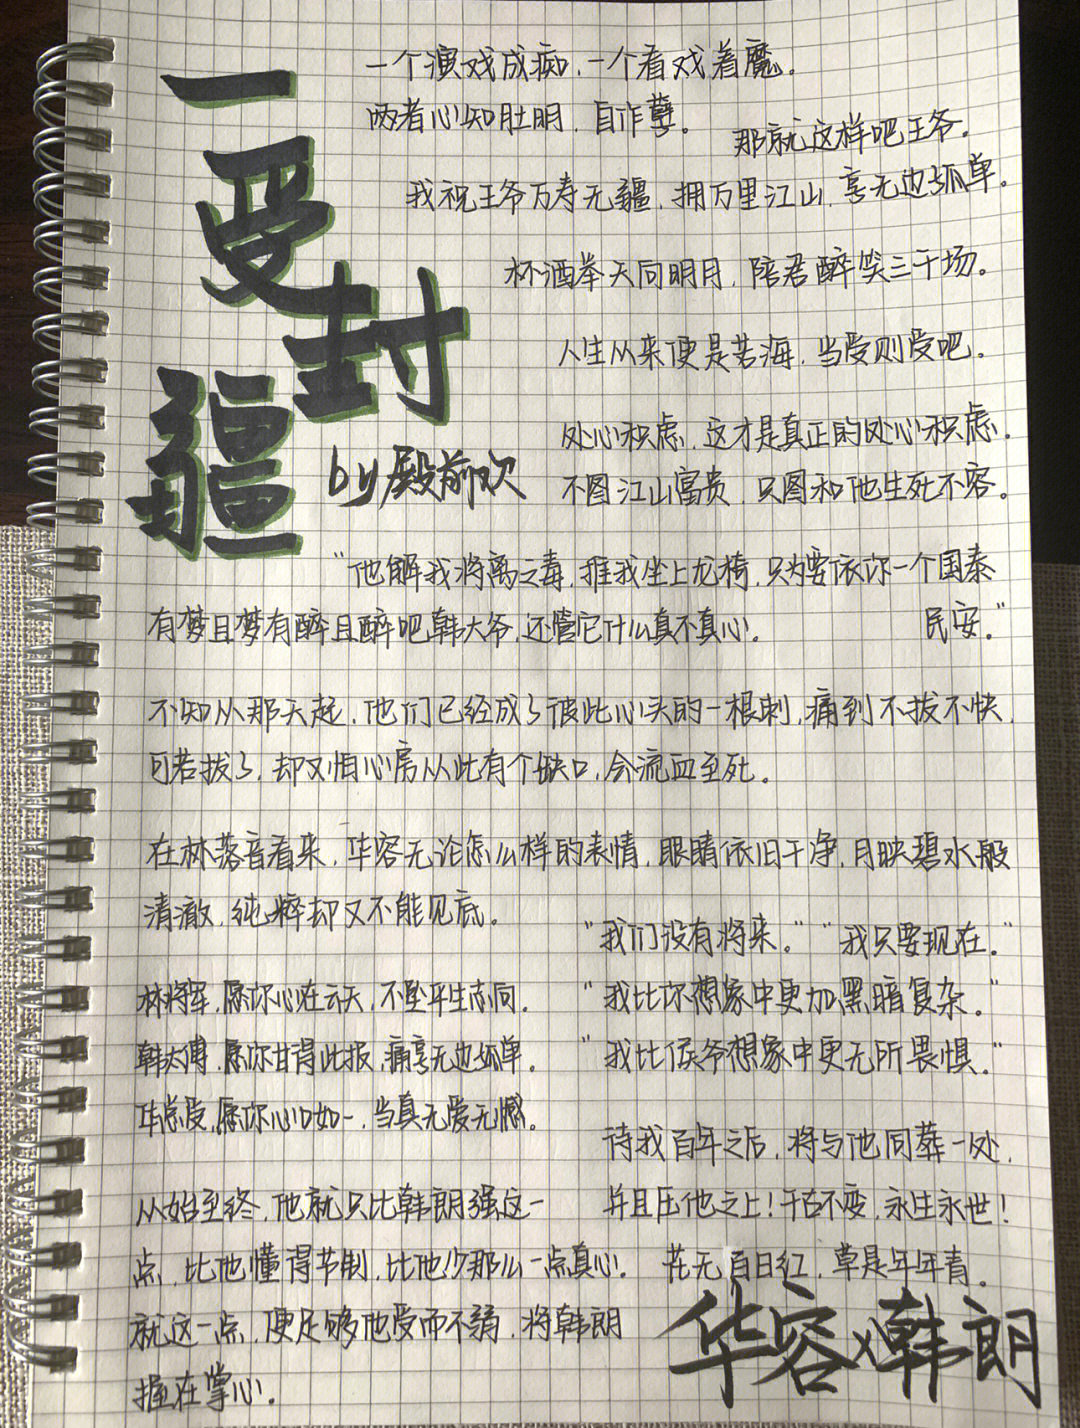 一受封疆
by 殿前欢
一个演戏成痴，一个看戏着魔。
两者心知肚明，自作孽。
那就这样吧王爷。
我祝王爷万寿无疆，拥万里江山，享无边孤单。
杯酒举天向明月，陪君醉笑三千场。
人生从来便是苦海，当受则受吧。
处心积虑，这才是真正的处心积虑。
不图江山富贵，只图和他生死不容。
“他解我将离之毒，推我坐上龙椅，只为要依你一个国泰
民安。”
有梦且梦有醉且醉吧韩大爷，还管它什么真不真心。
不知从那天起，他们已经成了彼此心头的一根刺，痛到不拔不快，
可若拔了，却又怕心房从此有个缺口，会流血至死。
在林落音看来，华容无论怎么样的表情，眼睛依旧干净，月映碧水般
清澈，纯粹却又不能见底。
“我们没有将来。”“我只要现在。”
林将军，愿你心在云天，不坠平生志向。
韩太傅，愿你甘得此报，痛享无边孤单。
华总受，愿你心口如一，当真无爱无憾。
“我比你想象中更加黑暗复杂。”
“我比侯爷想象中更无所畏惧。”
待我百年之后，将与他同葬一处，
并且压他之上！千古不变，永生永世！
从始至终，他就只比韩朗强这一
点，比他懂得节制，比他少那么一点真心。
就这一点，便足够他受而不弱，将韩朗
握在掌心。
花无百日红，草是年年青。
华容×韩朗